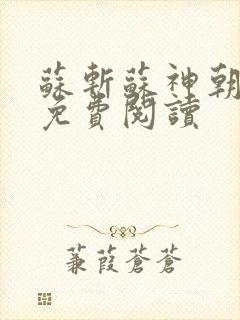 蘇斬蘇神朝
免費閱讀
蒹葭蒼蒼